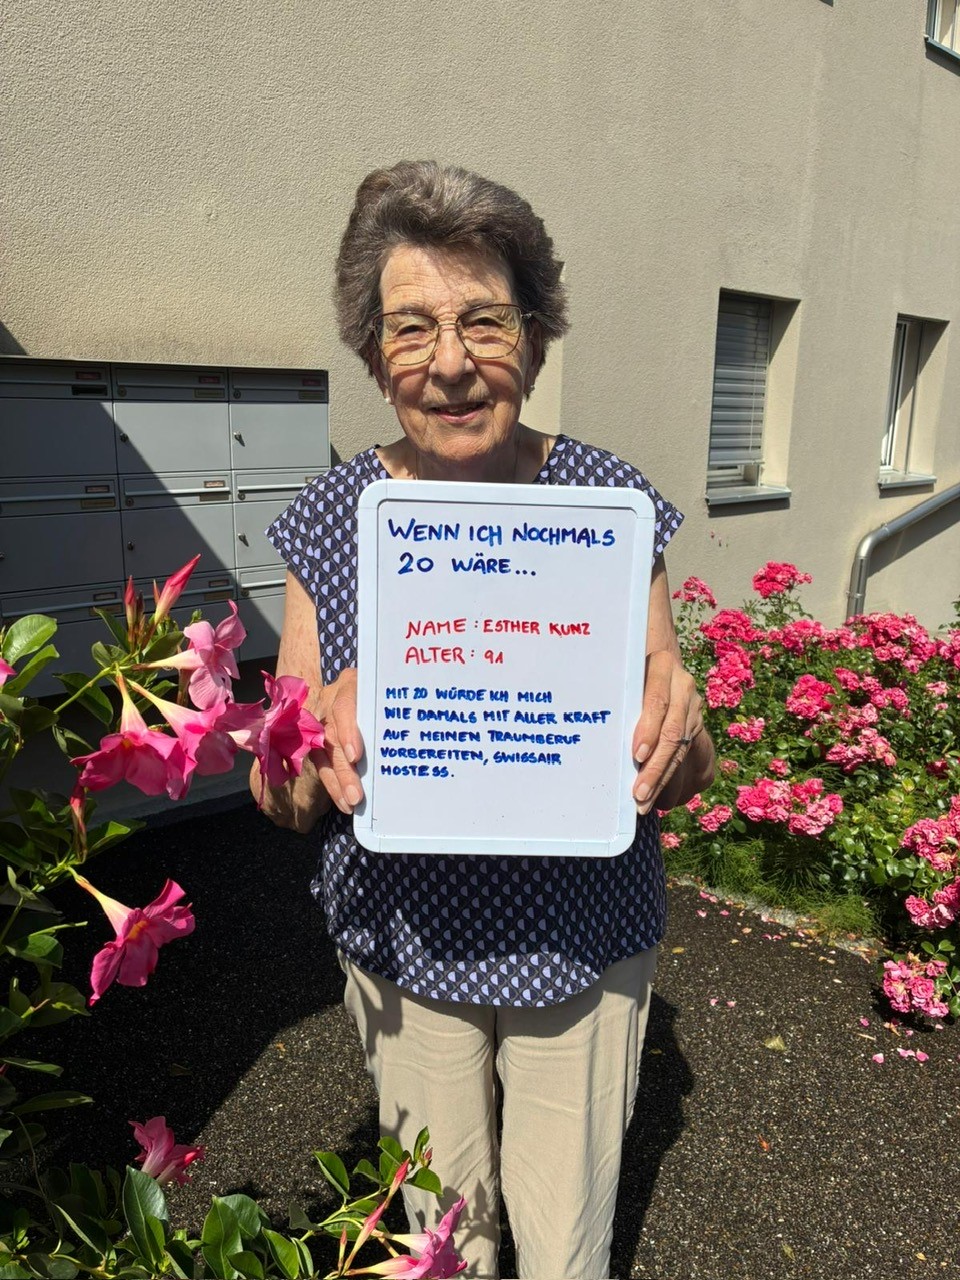 WENN ICH NOCHMALS
20 WÄRE...
NAME : ESTHER KUNZ
ALTER : 91
MIT 20 WÜRDE ICH MICH
WIE DAMALS MIT ALLER KRAFT
AUF MEINEN TRAUMBERUF
VORBEREITEN, SWISSAIR
HOSTESS.